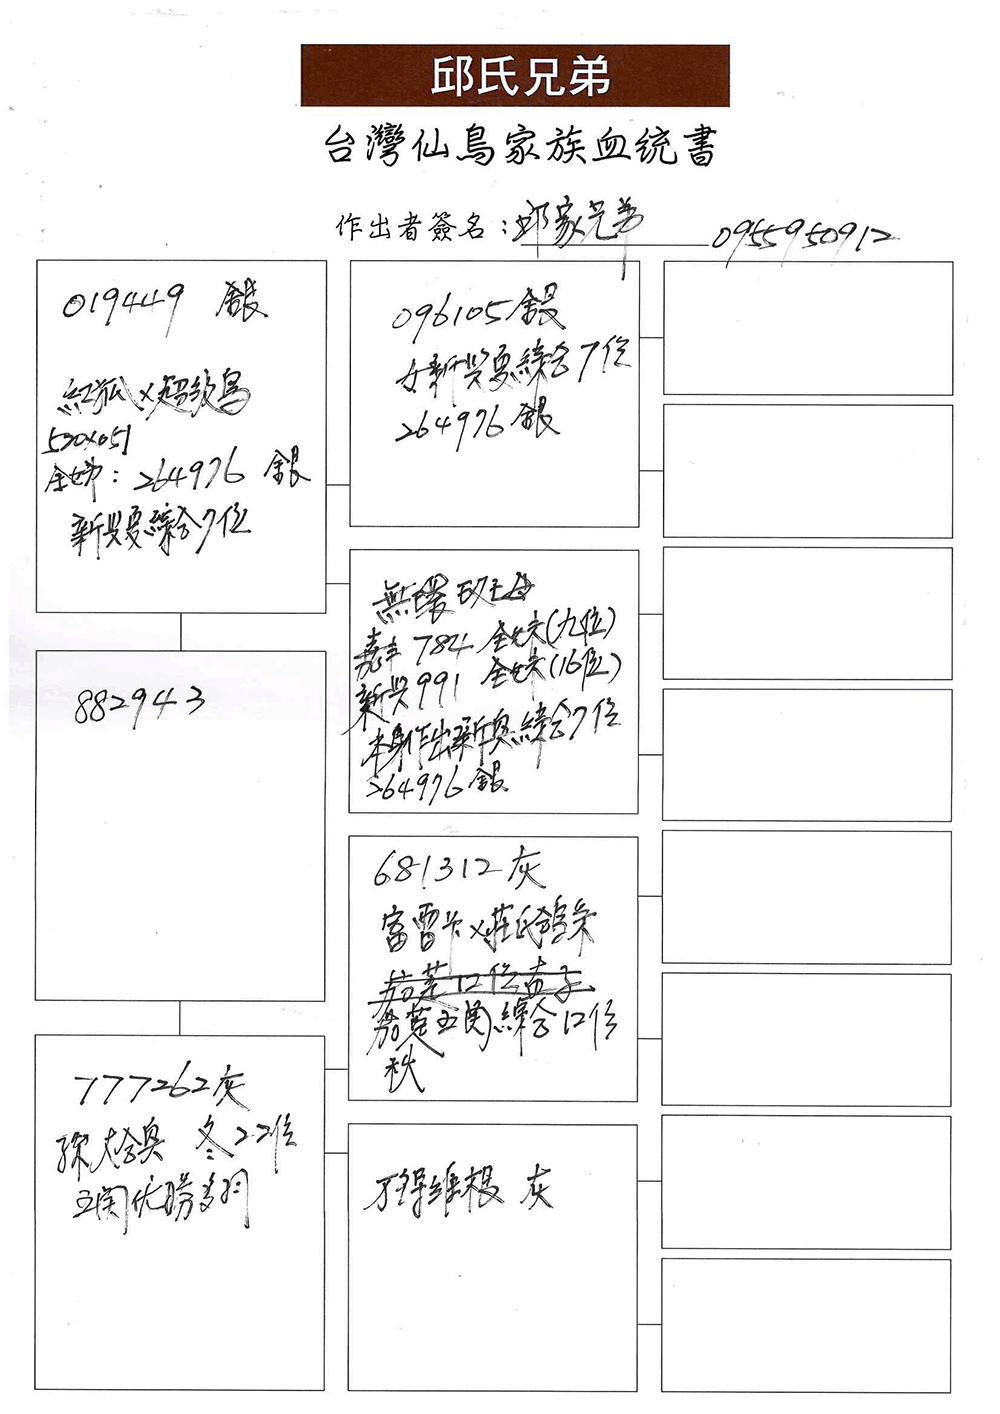 邱氏兄弟
台灣仙鳥家族血统書
作出者簽名：邱家兄弟 0955950912
019449 銀
紅狐×超級鳥
520×051
全姊：264976 銀
新興要綜合7位
882943
777262灰
孫大舍奥 冬22位
五関优勝多羽
096105銀
女新興要綜合7位
264976銀
無環
嘉 784 全妹(九位)
新兴991 全妹(16位)
本身作出新奥綜合7位
264976銀
681312灰
富雷 ×莊氏
12位
五関綜合12位
秋
維根 灰